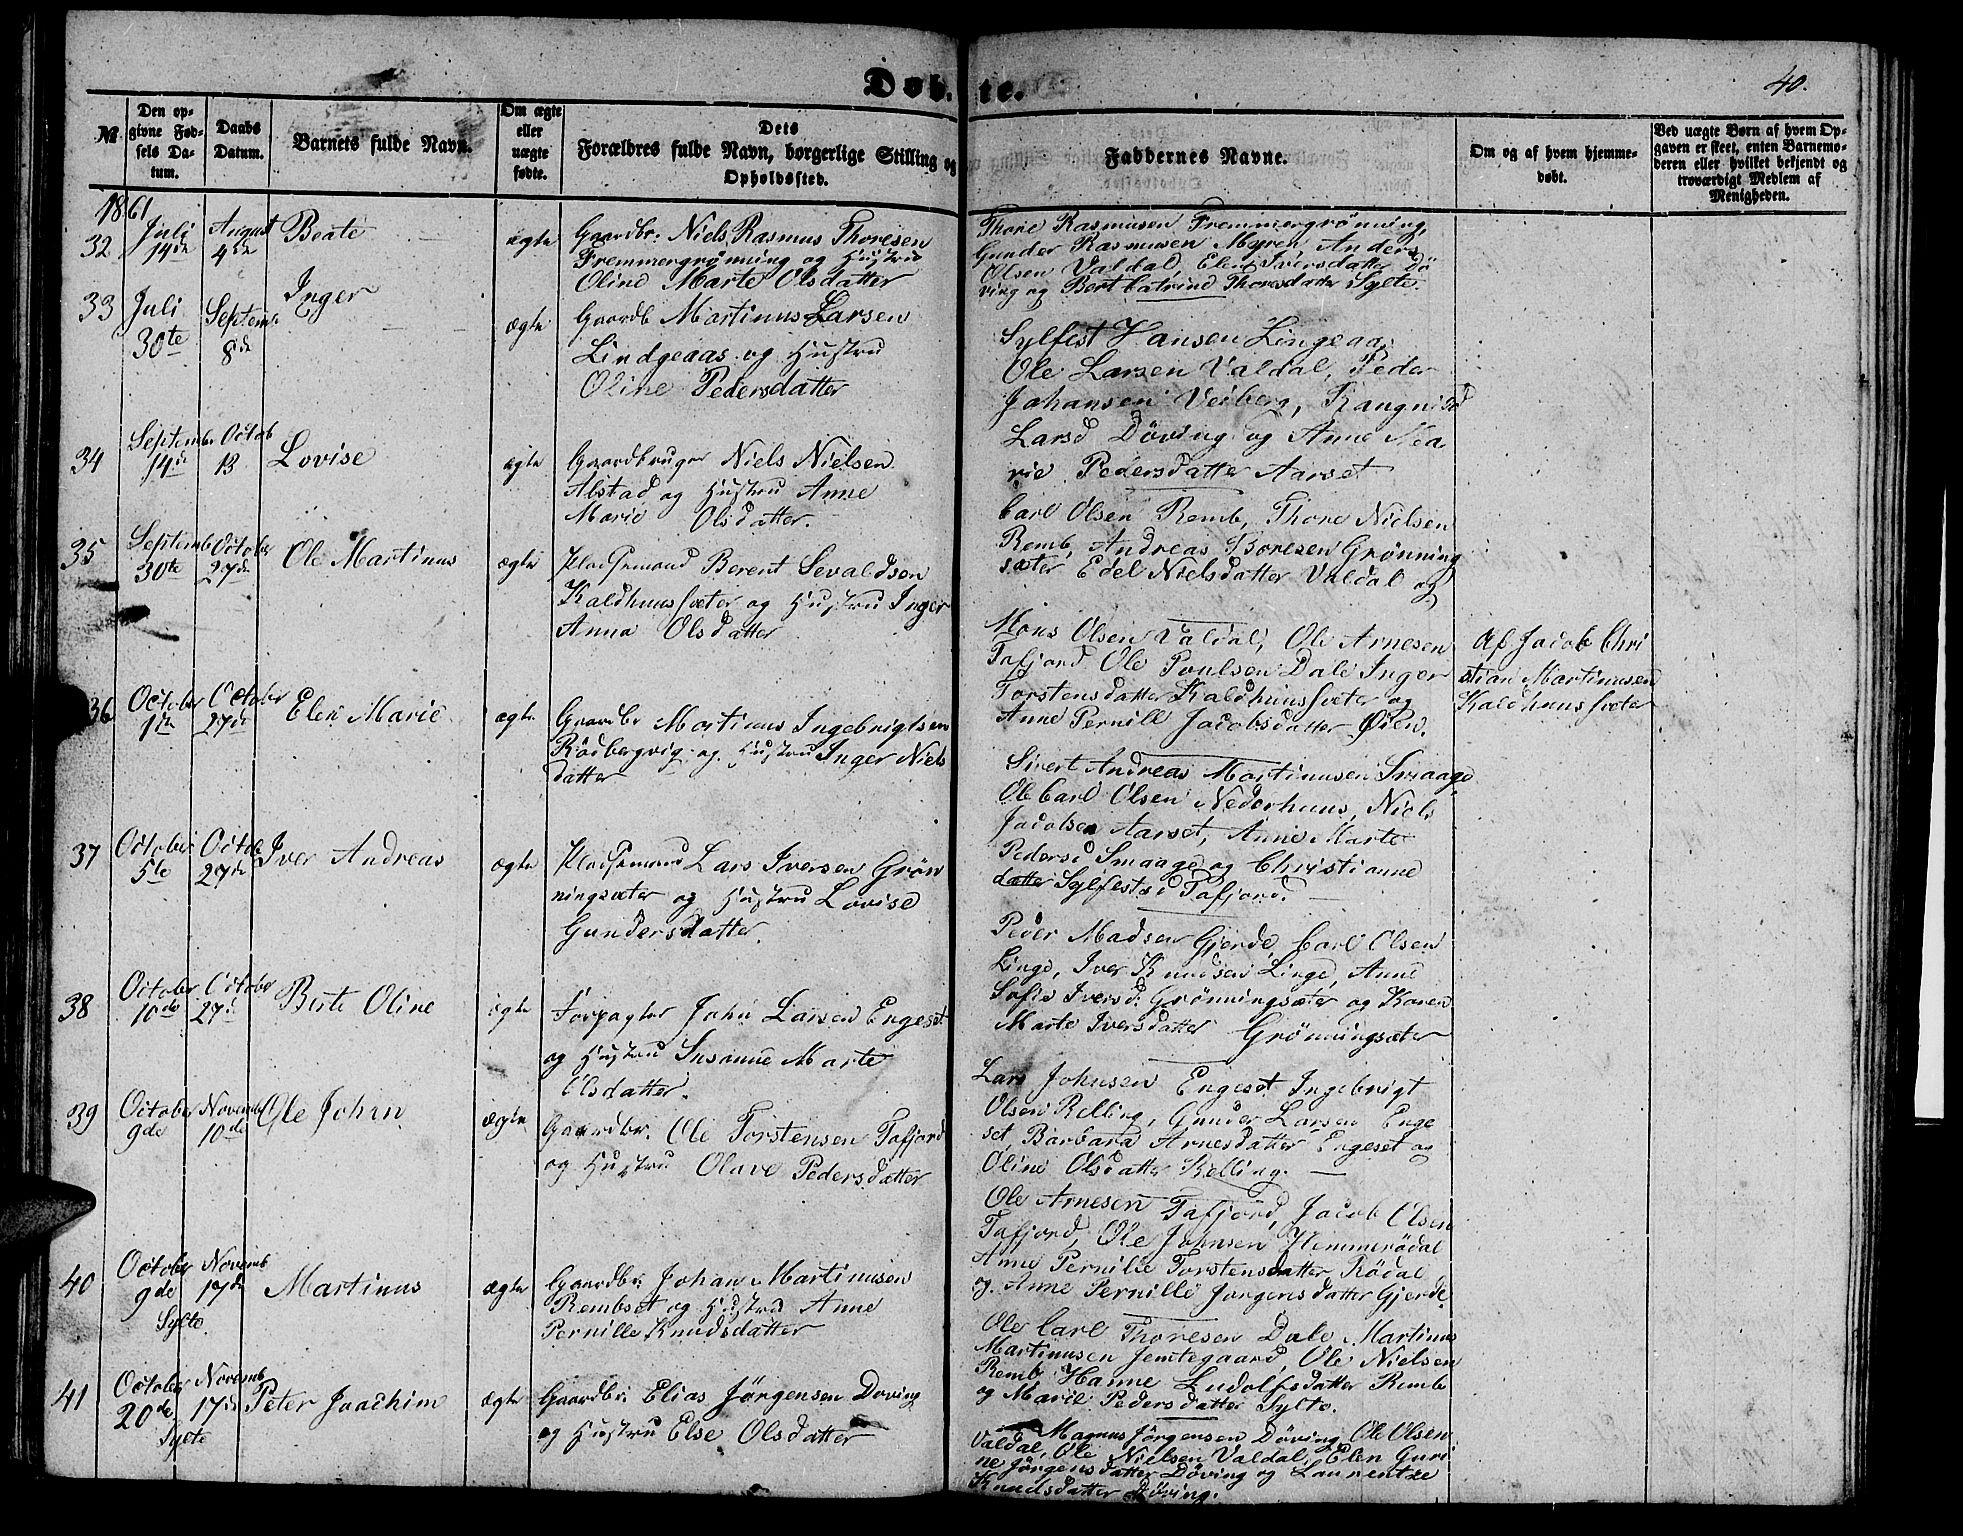 Døb- te.
40.
№
Den op-
givne Fød-
sels Da-
tum.
Daabs
Datum.
Barnets fulde Navn.
Om ægte
eller
uægte
fødte.
Dets
Forældres fulde Navn, borgerlige Stilling og
Opholdssted.
Faddernes Navne.
Om og af hvem hjemme-
døbt.
Ved uægte Børn af hvem Op-
gaven er skeet, enten Barnemo-
deren eller hvilket bekjendt og
troværdigt Medlem af
Menigheden.
1861
32
Juli
14de
August
4de
Beate
ægte
Gaardbr: Niels Rasmus Thoresen
Fremmergrønning og Hustru
Oline Marte Olsdatter
Thore Rasmusen Fremmergrønning
Gunder Rasmusen Myren Anders
Olsen Valdal, Elen Iversdatter Dö
ving og Berit Catrine Thoresdatter Sylte
33
Juli
30te
Septemb.
8de
Inger
ægte
Gaardb Martinus Larsen
Lindgeaas og Hustru
Oline Pedersdatter
Sylfest Hansen Lingeaas
Ole Larsen Valdal, Peder
Johansen Veiberg, Rangnild
Larsd Döving og Anne Ma
rie Pedersdatter Aarset
34
Septembr
14de
Octob
13
Lovise
ægte
Gaardbruger Niels Nielsen
Alstad og Hustru Anne
Marie Olsdatter.
Carl Olsen Remb, Thore Nielsen
Remb, Andreas Toresen Grønning
sæter Edel Nielsdatter Valdal og
35
Septemb
30te
October
27de
Ole Martinus
ægte
Pladsemand Berent Sevaldsen
Kaldhuussæter og Hustru Inger
Anna Olsdatter
Mons Olsen Valdal, Ole Arnesen
Tafjord Ole Poulsen Dale Inger
Torstensdatter Kaldhuussæter og
Anne Pernille Jacobsdatter Øien.
Af Jacob Chri
stian Martinusen
Kaldhuussæter
36
October
1de
October
27de
Elen Marie
ægte
Gaardbr Martinus Ingebrigtsen
Rödbergvig og Hustru Inger Niels
datter
Sivert Andreas Martinusen Smaage
Ole Carl Olsen Nederhuus, Niels
Jacobsen Aarset, Anne Marte
Pedersd Smaage og Christianne
datter Sylfestsd Tafjord.
37
October
5te
Octob
27de
Iver Andreas
ægte
Pladsemand Lars Iversen Grøn
ningsæter og Hustru Lovise
Gundersdatter.
Peder Madsen Gjerde, Carl Olsen
Linge, Iver Knudsen Linge, Anne
Sofie Iversd: Grønningsæter og Karen
Marte Iversdatter Grønningsæter
38
October
10de
October
27de
Berte Oline
ægte
Forpagter John Larsen Engeset
og Hustru Susanne Marte
Olsdatter.
Lars Johnsen Engeset Ingebrigt
Olsen Relling, Gunder Larsen Enge
set, Barbara Arnesdatter Engeset og
Oline Olsdatter Relling.
39
October
9de
Novemb
10de
Ole Johan
ægte
Gaardbr. Ole Torstensen Tafjord
og Hustru Olave Pedersdatter
Ole Arnesen Tafjord, Jacob Olsen
Tafjord, Ole Johnsen Hemmerødal
Anne Pernille Torstensdatter Rödal
og Anne Pernille Jørgensdatter Gjerde.
40
October
9de
Novemb
17de
Sylte.
Martinus
ægte
Gaardbr: Johan Martinusen
Rembset og Hustru Anne
Pernille Knudsdatter
Ole Carl Thoresen Dale Martinus
Martinusen Jemtegaard, Ole Nielsen
Remb Hanne Ludolfsdatter Remb
og Marie Pedersdatter Sylte.
41
October
20de
Novemb
17de
Sylte
Peter Joachim
ægte
Gaardbr: Elias Jørgensen Døving
og Hustru Else Olsdatter
Magnus Jørgensen Döving, Ole Olsen
Valdal, Ole Nielsen Valdal, Elen Guri
ne Jørgensdatter Döving og Laurentze
Knudsdatter Döving.